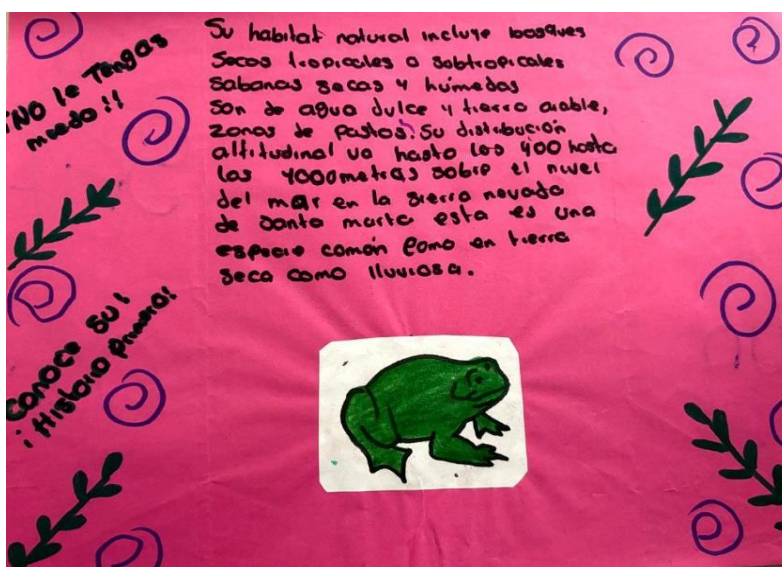 ¡NO le Tengas
miedo!!
Su habitat natural incluye bosques
Secos tropicales o subtropicales
Sabanas secas y húmedas
Son de agua dulce y tierra arable,
zonas de pastos. Su distribución
altitudinal va hasta los 400 hasta
los 4000metros sobre el nivel
del mar en la sierra nevada
de santa marta esta es una
especie común como en tierra
seca como lluviosa.
Conoce su
¡Historia primero!